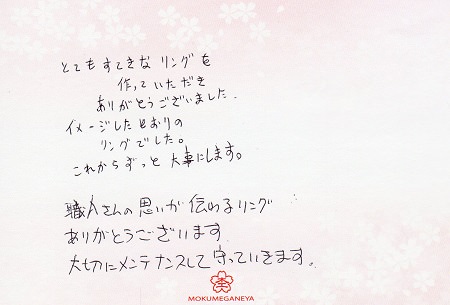 とてもすてきな リングを
作っていただき
ありがとうございました.
イメージしたとおりの
リングでした。
これからずっと 大事にします。
職人さんの思いが 伝わるリング
ありがとうございます
大切にメンテナンスして守っていきます。
MOKUMEGANEYA